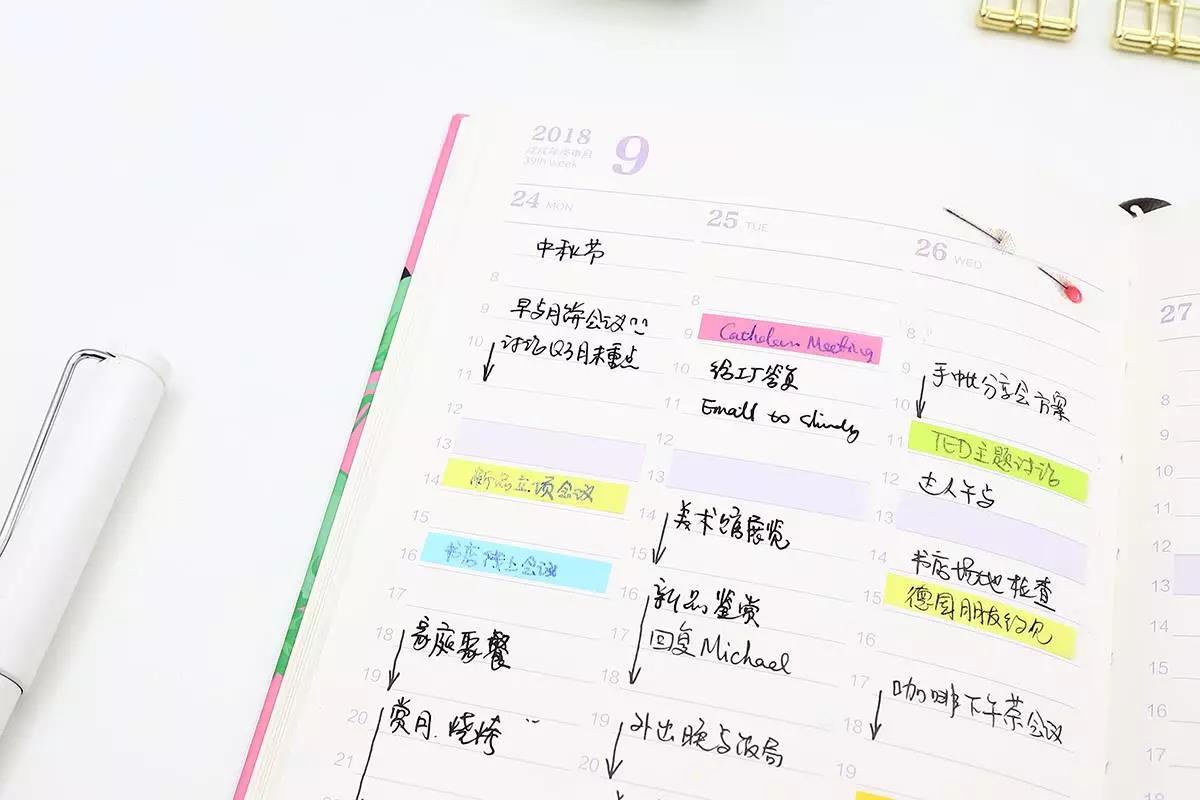 2018 9
戊戌年 辛酉月
39th week
24 MON
中秋节
8
9 早与月饼会议
10 讨论Q3月末重点
11
12
13
14 新品立项会议
15
16 书店线上会议
17
18 家庭聚餐
19
20 赏月.烧烤
21
25 TUE
8
9 Meeting
10 给工厂答复
11 Email to
12
13
14 美术馆展览
15
16 新品鉴赏
17 回复Michael
18
19 外出晚与饭局
20
26 WED
8
9 手帐分享会方案
10
11 TED主题讨论
12 达人午与
13
14 书店场地检查
15 德国朋友约见
16
17 咖啡下午茶会议
18
19
27
8
9
10
11
12
13
14
15
16
17